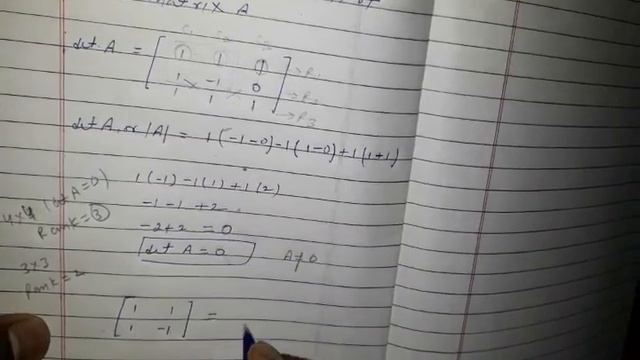 matrix A
C1 C2 C3
det A = [ 1 1 1 → R1
1 -1 0 → R2
1 1 1 ] → R3
det A or |A| = 1(-1-0)-1(1-0)+1(1+1)
1(-1)-1(1)+1(2)
-1-1+2
-2+2 = 0
det A = 0 A≠0
4x4 (det A=0)
Rank = 3
3x3
Rank = 2
[ 1 1
1 -1 ] =